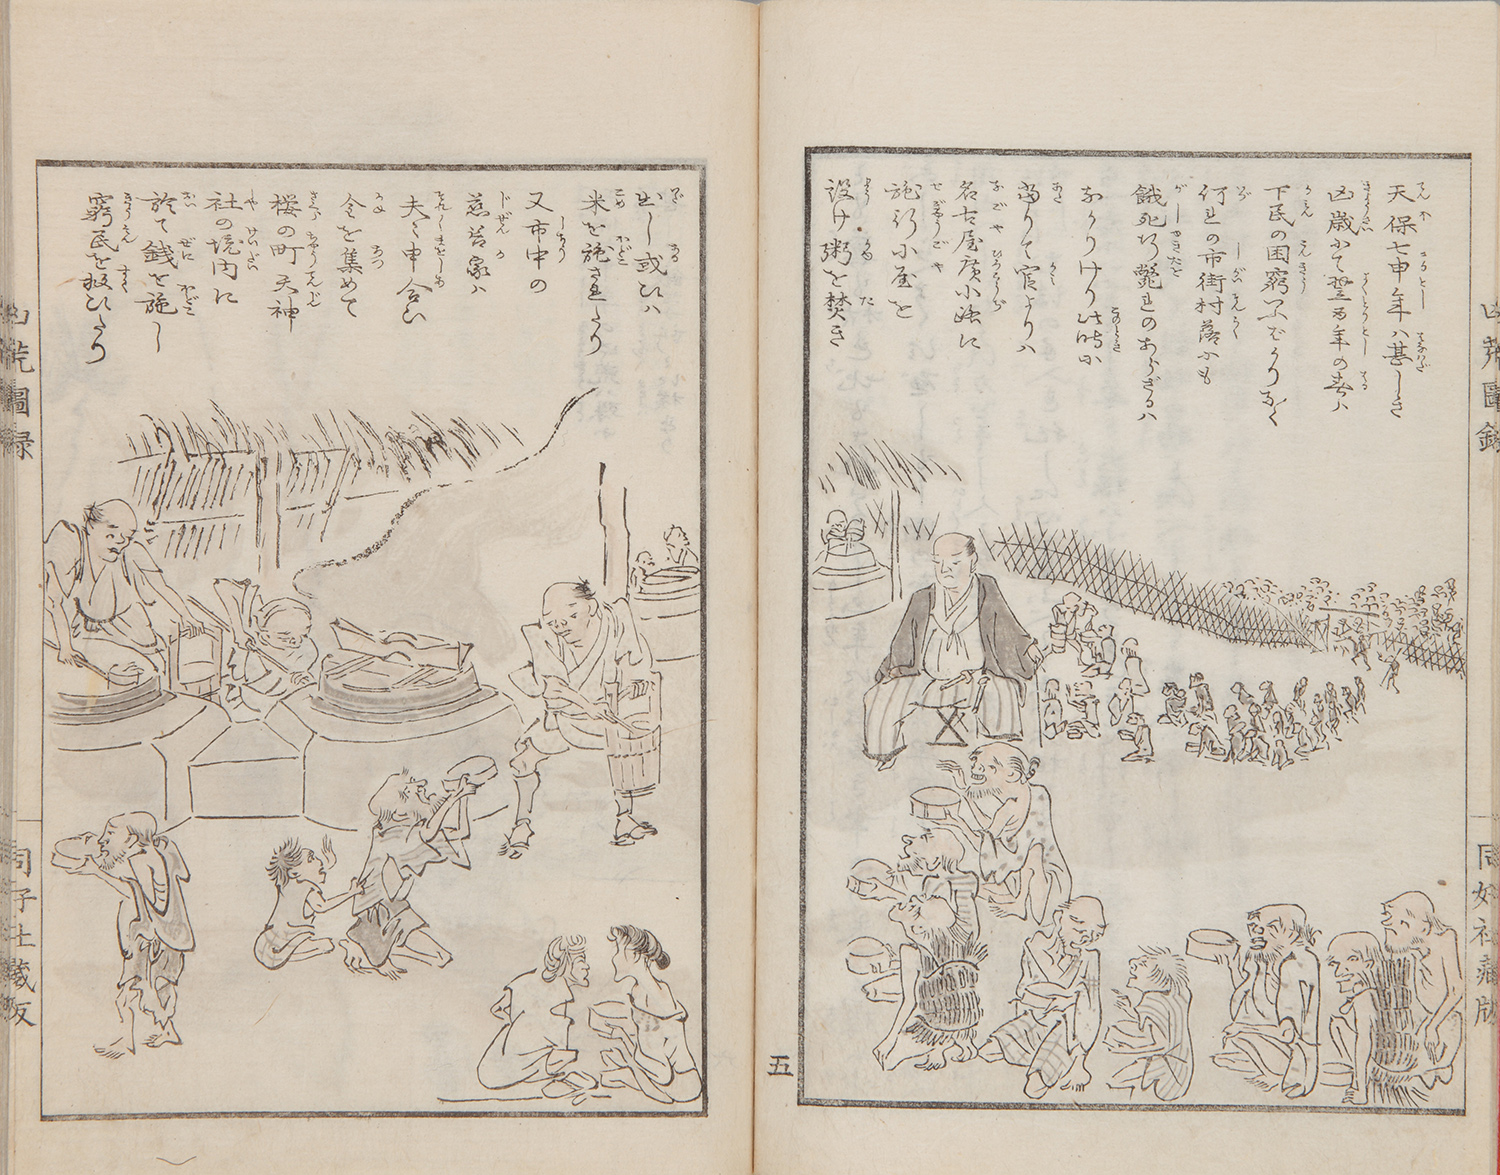 天保七申年ハ甚しき
凶歳にて翌酉年の春ハ
下民の困窮いふばかりなく
何れの市街村落にも
餓死行斃れのあらざるハ
なかりけり此時に
当りて官よりハ
名古屋広小路に
施行小屋を
設け粥を焚き
出し或ひハ
米を施されたり
又市中の
慈善家ハ
夫々申合ひ
金を集めて
桜の町天神
社の境内に
於て銭を施し
窮民を救ひたり
凶荒圖録
同好社蔵版
五
凶荒圖録
同好社蔵版